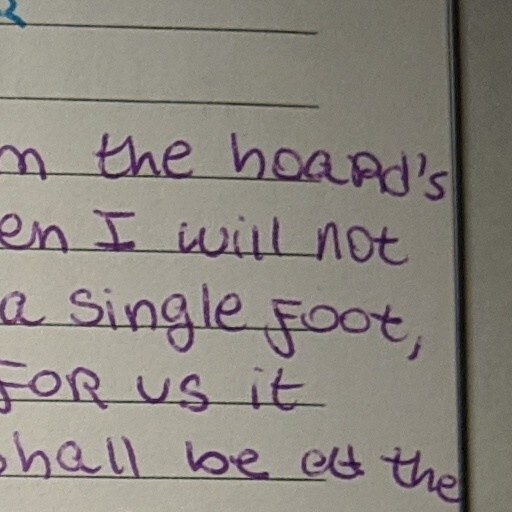 m the hoard's
en I will not
a single foot,
for us it
shall be at the